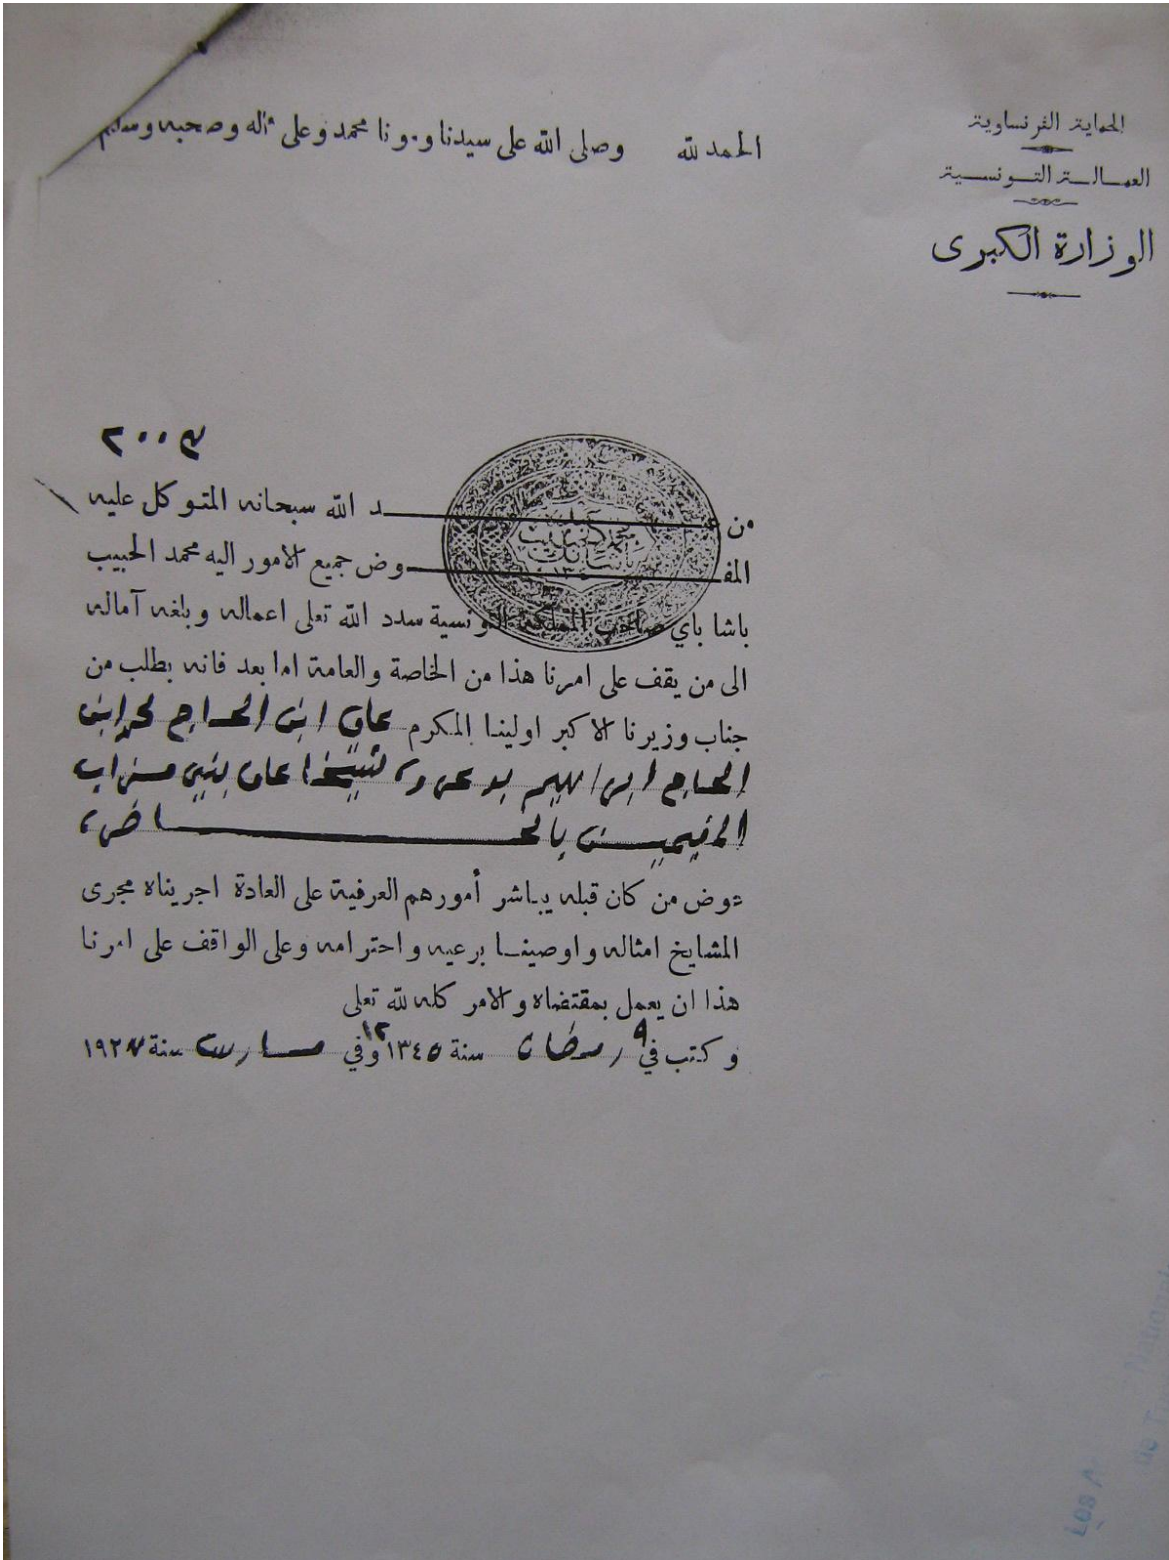 الحماية الفرنساوية
العمالة التونسية
الوزارة الكبرى
الحمد لله وصلى الله على سيدنا ومونا محمد وعلى ءاله وصحبه وسلم
٢٠٠٣
من عبد الله سبحانه المتوكل عليه
المفوض جميع الامور اليه محمد الحبيب
باشا باي صاحب المملكة التونسية سدد الله تعلى اعماله وبلغه آماله
الى من يقف على امرنا هذا من الخاصة والعامة اما بعد فانه بطلب من
جناب وزيرنا الاكبر اولينا المكرم ابن الحاج محمد ابن
الحاج ابراهيم بو عروة شيخا على بني مزاب
المقيمين بالحاضرة
عوض من كان قبله يباشر أمورهم العرفية على العادة اجريناه مجرى
المشايخ امثاله واوصينا برعيه واحترامه وعلى الواقف على امرنا
هذا ان يعمل بمقتضاه والامر كله لله تعلى
وكتب في ٩ رمضان سنة ١٣٤٥ وفي ١٢ مارس سنة ١٩٢٧